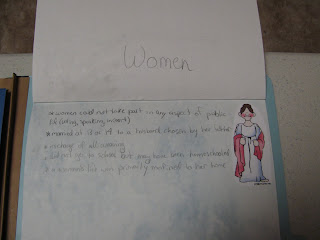 Women
* women could not take part in any aspect of public
life (voting, speaking, in court)
* married at 13 or 14 to a husband chosen by her father
* in charge of all weaving
* did not go to school but may have been homeschooled
* a woman's life was primarily in her home